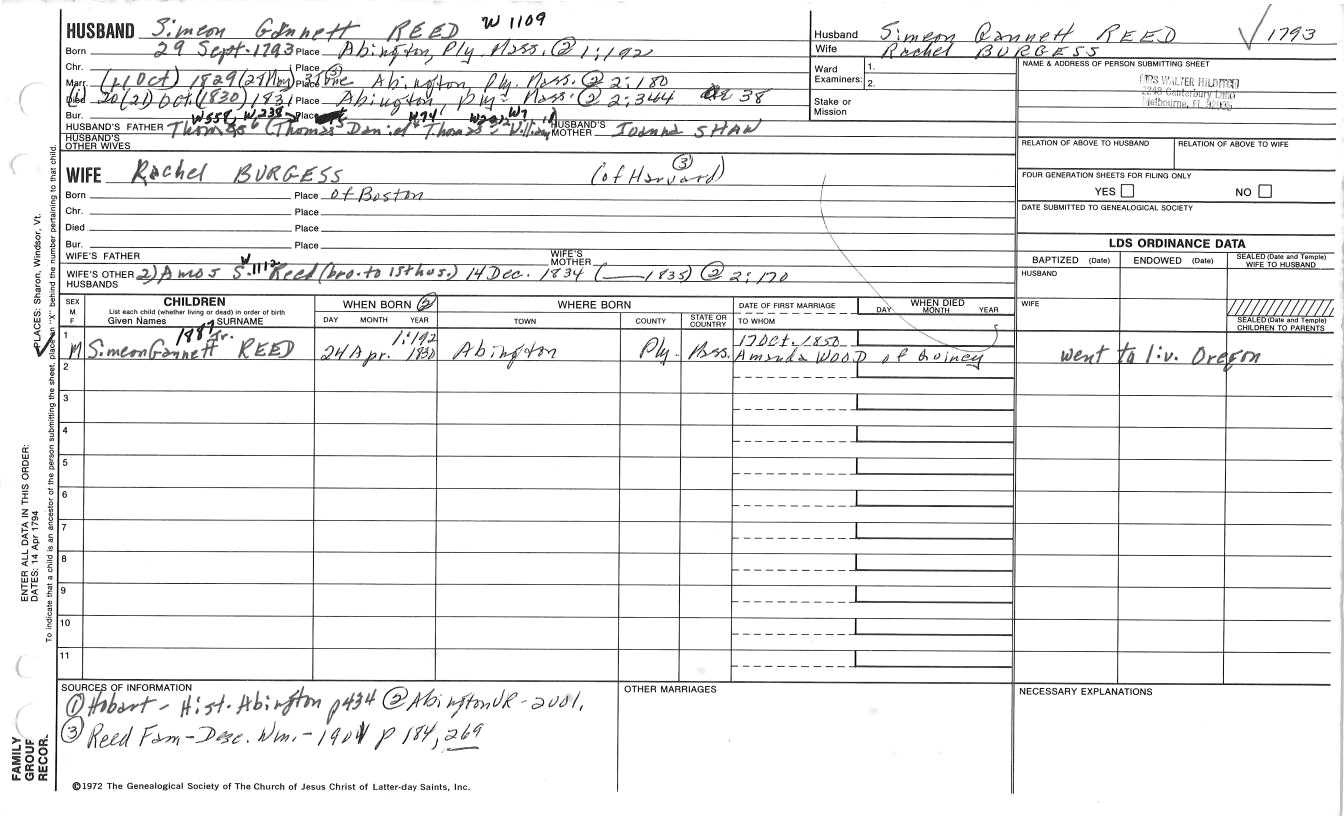 HUSBAND Simeon Gannett REED W 1109
Born 29 Sept. 1793 Place Abington, Ply. Mass. ② 1:192
Chr. Place ③
Marr. (11 Oct) 1829 (28 Nov) Place Abington, Ply. Mass. ② 2:180
① Died 20 (21) Oct. (1830) 1831 Place Abington, Ply. Mass. ② 2:344 38
Bur. W558, W238 Place W74 W7
HUSBAND'S FATHER Thomas (Thomas Daniel Thomas William) HUSBAND'S MOTHER Joanna SHAW
HUSBAND'S OTHER WIVES
WIFE Rachel BURGESS (of Harvard) ③
Born Place of Boston
Chr. Place
Died Place
Bur. Place
WIFE'S FATHER WIFE'S MOTHER
WIFE'S OTHER HUSBANDS 2) Amos S. W 1112 Reed (bro. to 1st hus.) 14 Dec. 1834 ( 1835) ② 2:170
Husband Simeon Gannett REED 1793
Wife Rachel BURGESS
Ward Examiners: 1.
2.
Stake or Mission
NAME & ADDRESS OF PERSON SUBMITTING SHEET
MRS WALTER
Canterbury
Melbourne, FL
RELATION OF ABOVE TO HUSBAND RELATION OF ABOVE TO WIFE
FOUR GENERATION SHEETS FOR FILING ONLY
YES NO
DATE SUBMITTED TO GENEALOGICAL SOCIETY
LDS ORDINANCE DATA
BAPTIZED (Date) ENDOWED (Date) SEALED (Date and Temple) WIFE TO HUSBAND
HUSBAND
WIFE
SEALED (Date and Temple) CHILDREN TO PARENTS
SEX M F CHILDREN List each child (whether living or dead) in order of birth Given Names SURNAME
WHEN BORN ② DAY MONTH YEAR
WHERE BORN TOWN COUNTY STATE OR COUNTRY
DATE OF FIRST MARRIAGE TO WHOM
WHEN DIED DAY MONTH YEAR
1 1887 Jr. 1:192 17 Oct. 1850
M Simeon Gannett REED 24 Apr. 1830 Abington Ply. Mass. Amanda WOOD of Quincy went to liv. Oregon
2
3
4
5
6
7
8
9
10
11
SOURCES OF INFORMATION
① Hobart - Hist. Abington p434 ② Abington VR - 2001.
③ Reed Fam - Desc. Wm. - 1901 p 184, 269
OTHER MARRIAGES
NECESSARY EXPLANATIONS
©1972 The Genealogical Society of The Church of Jesus Christ of Latter-day Saints, Inc.
FAMILY GROUP RECOR.
ENTER ALL DATA IN THIS ORDER:
DATES: 14 Apr 1794
PLACES: Sharon, Windsor, Vt.
To indicate that a child is an ancestor of the person submitting the sheet, place an "X" behind the number pertaining to that child.